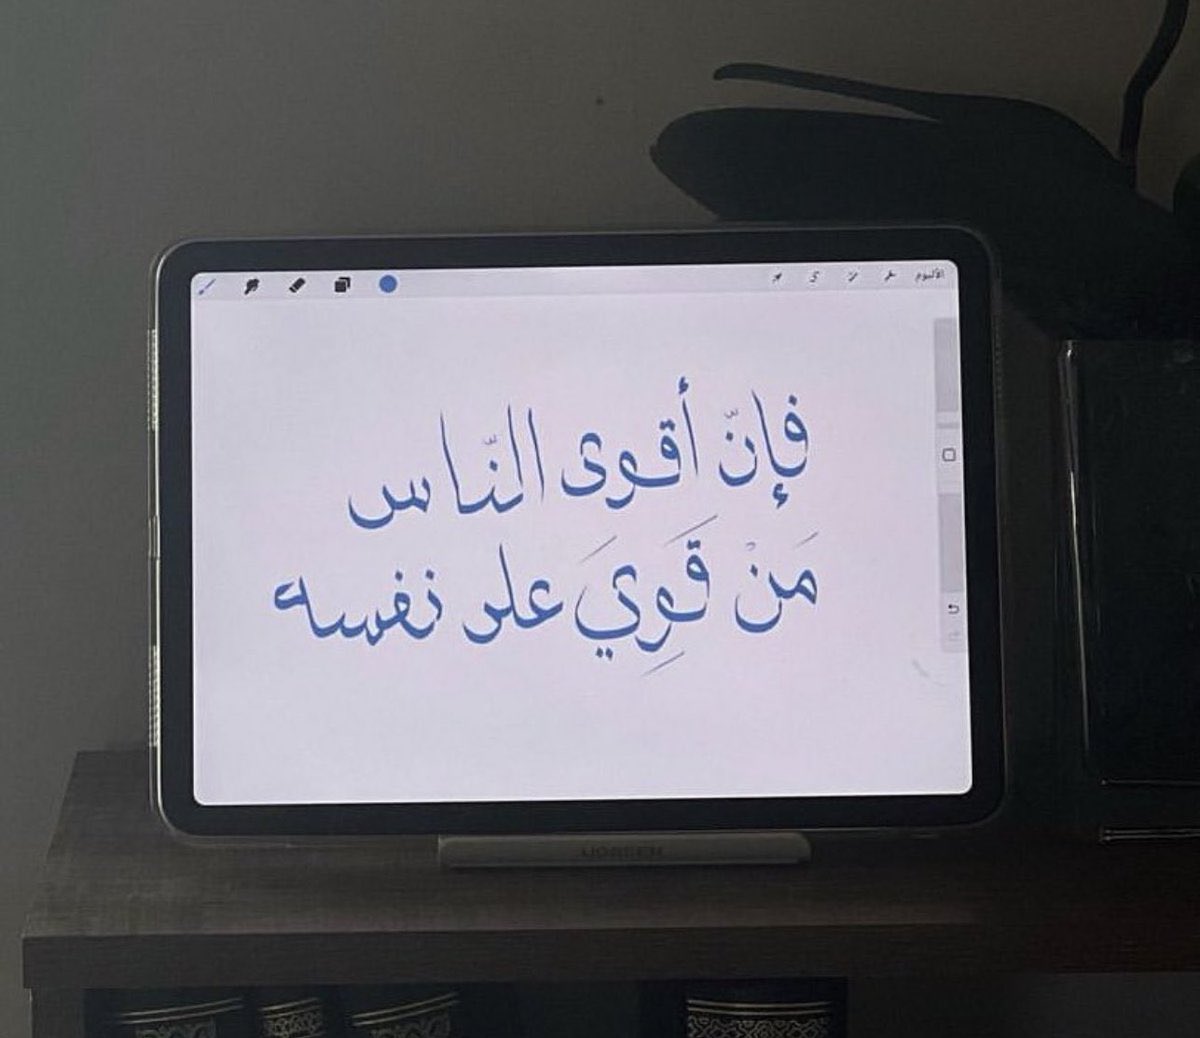 الألبوم
فإنّ أقوى النّاس
مَنْ قَوِيَ على نفسه
UGREEN